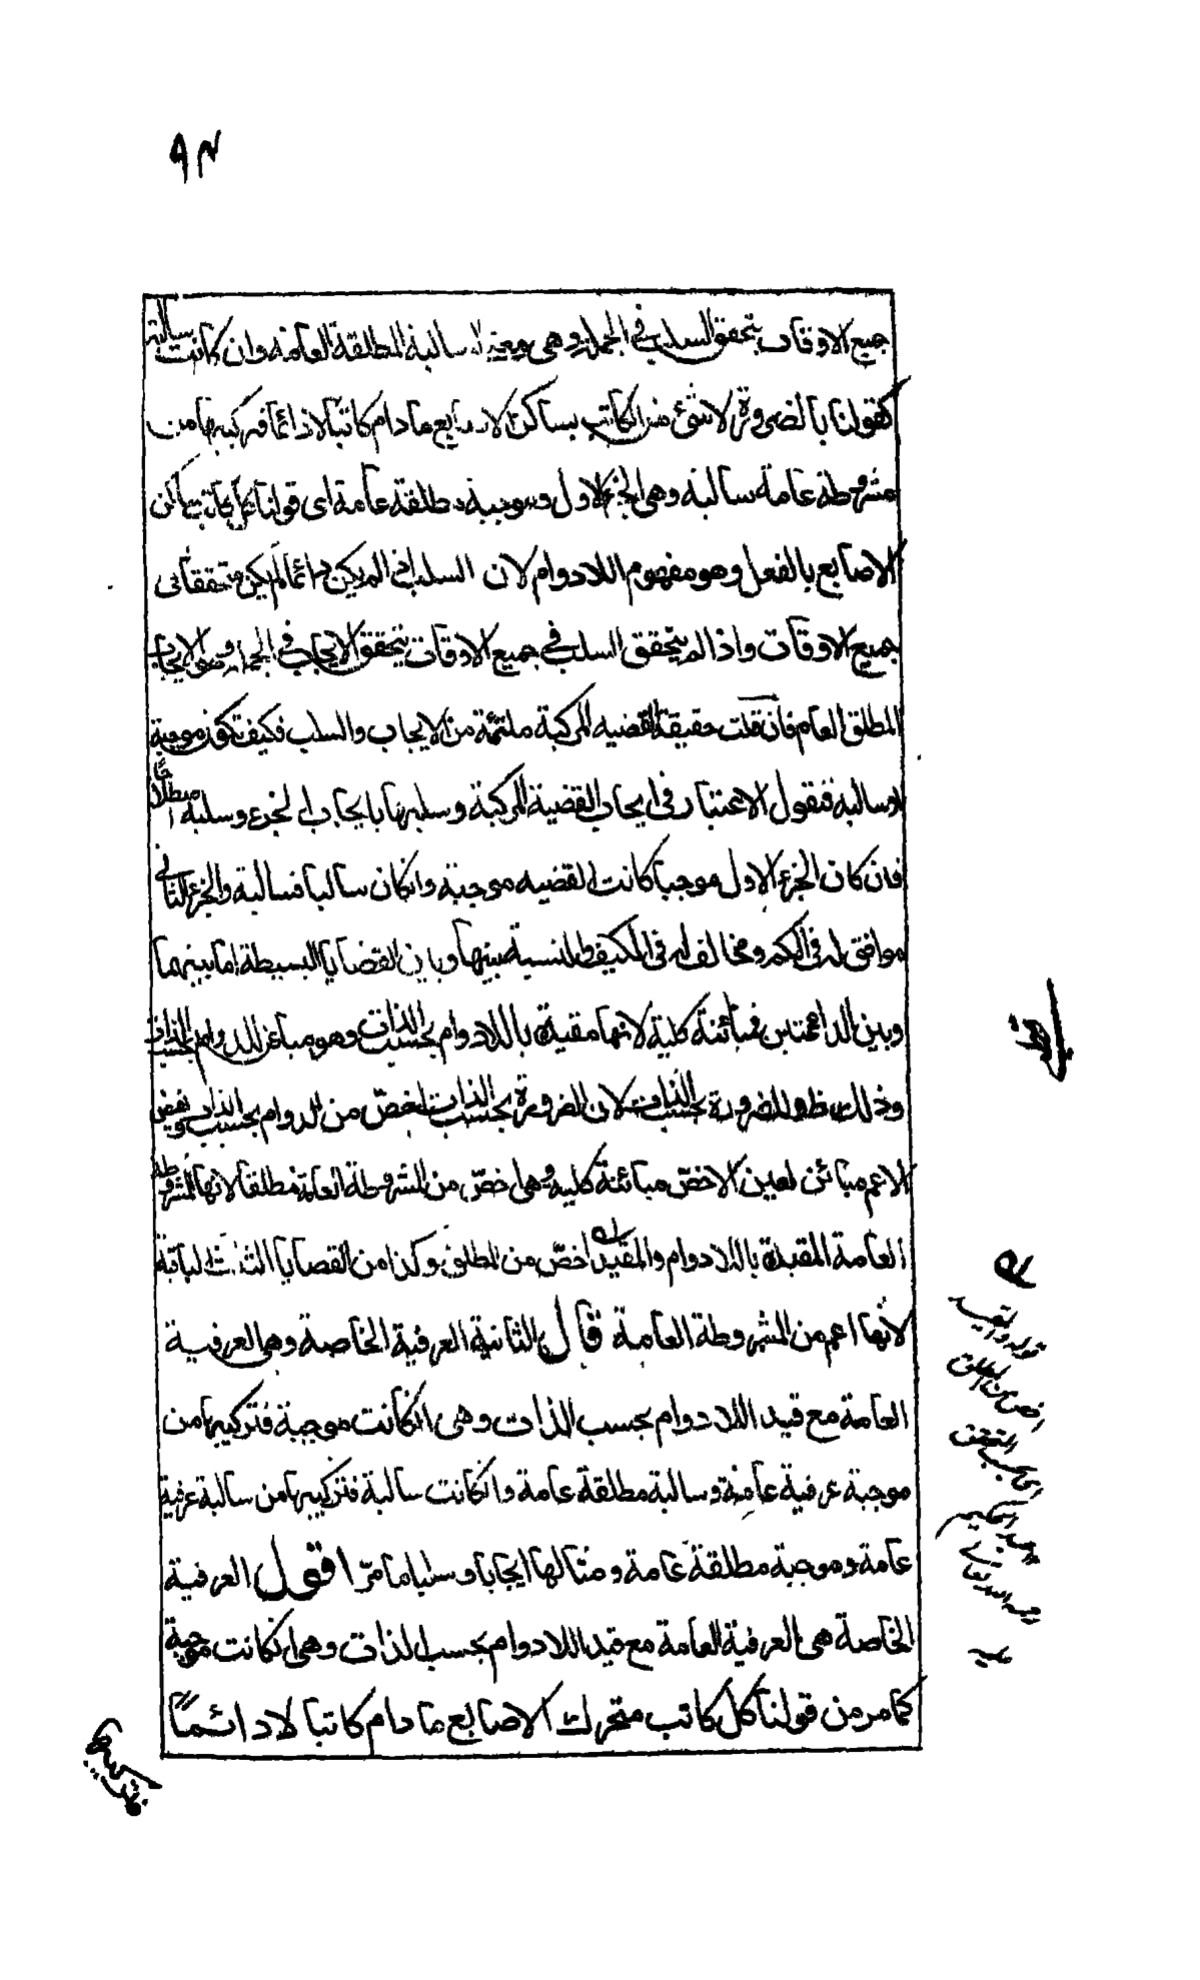 ٩٣
جميع الاوقات يتحقق السلب في الجملة وهي بمعنى السالبة المطلقة العامة وان كانت سالبة
كقولنا بالضرورة لا شئ من الكاتب بساكن الاصابع ما دام كاتبا لا دائما فتركيبها من
مشروطة عامة سالبة وهي الجزء الاول وموجبة مطلقة عامة اي قولنا كل كاتب ساكن
الاصابع بالفعل وهو مفهوم اللادوام لان السلب اذا لم يكن دائما لم يكن متحققا في
جميع الاوقات واذا لم يتحقق السلب في جميع الاوقات يتحقق الايجاب في الجملة وهو الايجاب
المطلق العام فان قلت حقيقة القضيه المركبة ملتئمة من الايجاب والسلب فكيف تكون موجبة
او سالبة فنقول الاعتبار في ايجاب القضية المركبة وسلبها بايجاب الجزء وسلبه اصطلاحا
فان كان الجزء الاول موجبا كانت القضيه موجبة وانكان سالبا فسالبة والجزء الثاني
موافق له في الكم ومخالف له في الكيف والنسبة بينها وبين القضايا البسيطة اما بينهما
وبين الدائمتين فمبائنة كلية لانها مقيدة باللادوام بحسب الذات وهو مبائن للدوام بحسب الذات
وذلك ظ وللضرورة بحسب الذات لان الضرورة بحسب الذات اخصّ من الدوام بحسب الذات ونقيض
الاعم مبائن لعين الاخصّ مبائنة كلية وهي اخصّ من المشروطة العامة مطلقا لانها المشروطة
العامة المقيدة باللادوام والمقيد اخصّ من المطلق وكذا من القضايا الثلث الباقية
لانها اعم من المشروطة العامة قال الثانية العرفية الخاصة وهي العرفية
العامة مع قيد اللادوام بحسب الذات وهي انكانت موجبة فتركيبها من
موجبة عرفية عامة وسالبة مطلقة عامة وانكانت سالبة فتركيبها من سالبة عرفية
عامة وموجبة مطلقة عامة ومثالها ايجابا وسلبا ما مرّ اقول العرفية
الخاصة هي العرفية العامة مع قيد اللادوام بحسب الذات وهي انكانت موجبة
كما مر من قولنا كل كاتب متحرك الاصابع ما دام كاتبا لا دائما
فتركيبها
قوله والمقيد
اخص من المطلق
عبد الحكيم
رحمة الله تعالى
عليه